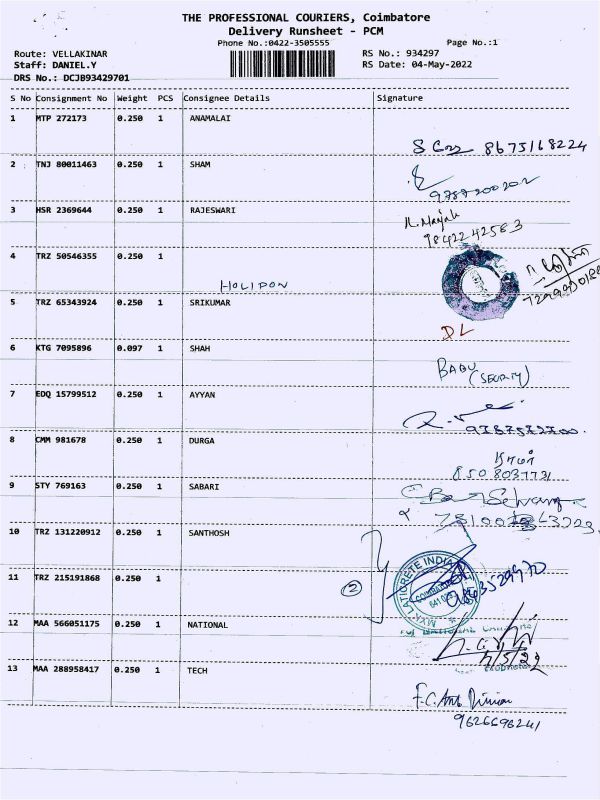 THE PROFESSIONAL COURIERS, Coimbatore
Delivery Runsheet - PCM
Phone No.:0422-3505555
Page No.:1
Route: VELLAKINAR
RS No.: 934297
Staff: DANIEL.Y
RS Date: 04-May-2022
DRS No.: DCJB93429701
S No Consignment No Weight PCS Consignee Details Signature
1 MTP 272173 0.250 1 ANAMALAI
8675168224
2 TNJ 80011463 0.250 1 SHAM
9787200202
3 HSR 2369644 0.250 1 RAJESWARI
9842242583
4 TRZ 50546355 0.250 1
HOLIDON
5 TRZ 65343924 0.250 1 SRIKUMAR
DL
6 KTG 7095896 0.097 1 SHAH
BABU
(SECURITY)
7 EDQ 15799512 0.250 1 AYYAN
8 CMM 981678 0.250 1 DURGA
9 STY 769163 0.250 1 SABARI
10 TRZ 131220912 0.250 1 SANTHOSH
11 TRZ 215191868 0.250 1
2
MYK LATICRETE INDIA
12 MAA 566051175 0.250 1 NATIONAL
7/5/22
13 MAA 288958417 0.250 1 TECH
9626696241